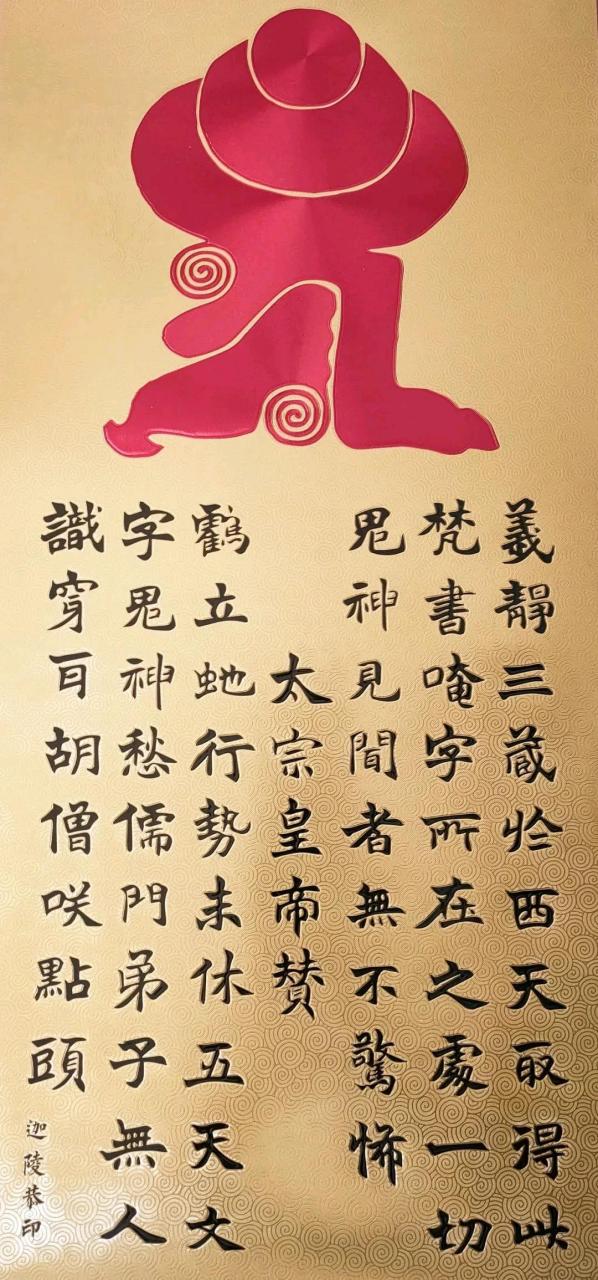 義靜三蔵於西天取得此
梵書唵字所在之處一切
鬼神見聞者無不驚怖
太宗皇帝賛
鶴立虵行勢未休五天文
字鬼神愁儒門弟子無人
識穿耳胡僧咲點頭
迦陵恭印